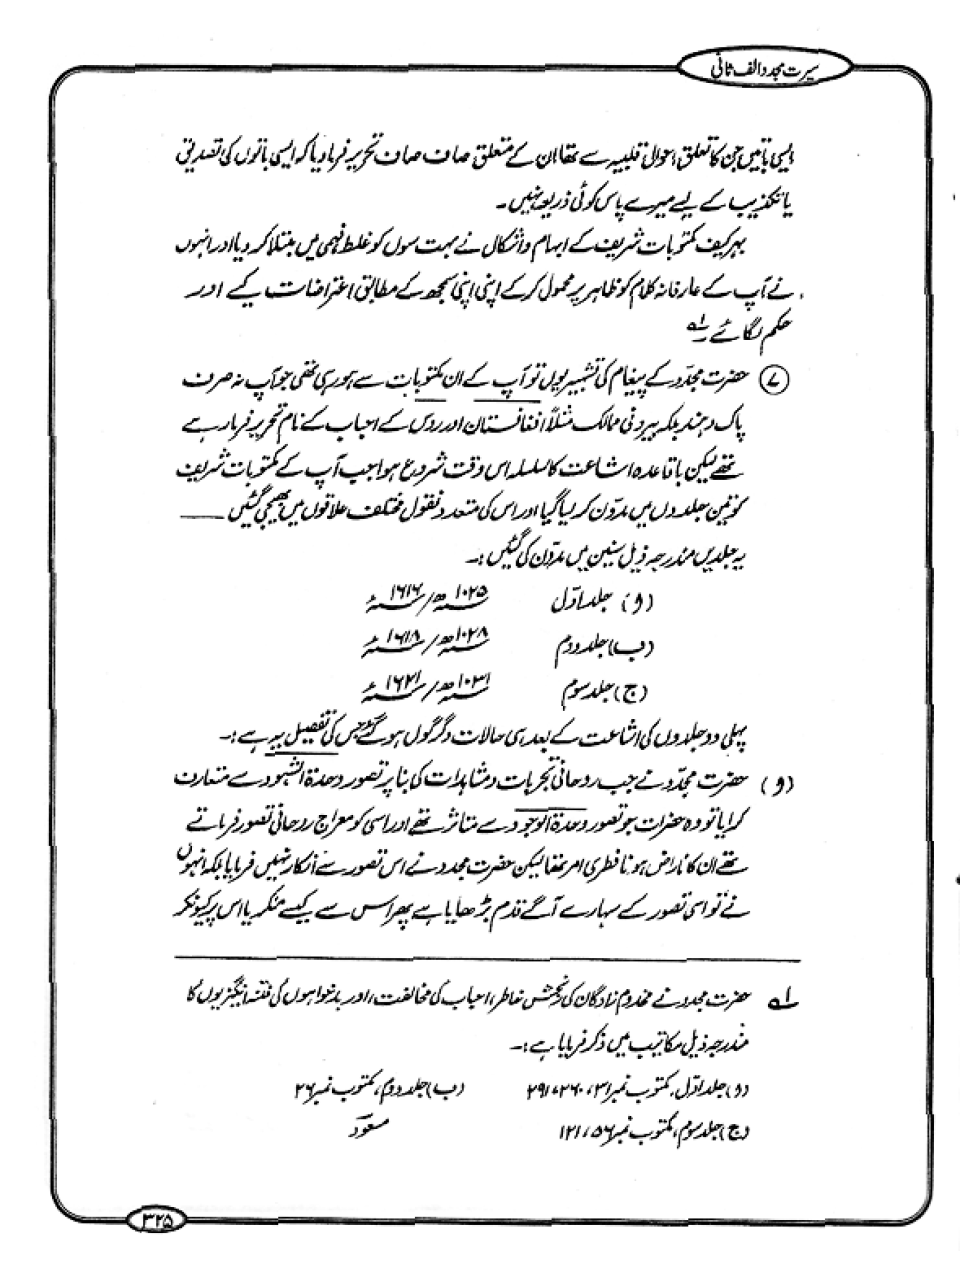 سیرت مجدد الف ثانی
ایسی باتیں جن کا تعلق احوال قلبیہ سے تھا ان کے متعلق صاف صاف تحریر فرما دیا کہ ایسی باتوں کی تصدیق
یا تکذیب کے لیے میرے پاس کوئی ذریعہ نہیں۔
بہرکیف مکتوبات شریف کے ابہام و اشکال نے بہت سوں کو غلط فہمی میں مبتلا کر دیا اور انہوں
نے آپ کے عارفانہ کلام کو ظاہر پر محمول کر کے اپنی اپنی سمجھ کے مطابق اعتراضات کیے اور
حکم لگائے۔ ۱ھ
(۷) حضرت مجدّد کے پیغام کی تشہیر یوں تو آپ کے ان مکتوبات سے ہو رہی تھی جو آپ نہ صرف
پاک و ہند بلکہ بیرونی ممالک مثلاً افغانستان اور روس کے احباب کے نام تحریر فرما رہے
تھے لیکن باقاعدہ اشاعت کا سلسلہ اس وقت شروع ہوا جب آپ کے مکتوبات شریف
کو تین جلدوں میں مدوّن کر لیا گیا اور اس کی متعدد نقول مختلف علاقوں میں بھیجی گئیں ــــ
یہ جلدیں مندرجہ ذیل سنین میں مدوّن کی گئیں :۔
(ا) جلد اوّل ۱۰۲۵ھ/۱۶۱۶ء
(ب) جلد دوم ۱۰۲۸ھ/۱۶۱۸ء
(ج) جلد سوم ۱۰۳۱ھ/۱۶۲۱ء
پہلی دو جلدوں کی اشاعت کے بعد ہی حالات دگرگوں ہو گئے جس کی تفصیل یہ ہے :۔
(ا) حضرت مجدّد نے جب روحانی تجربات و مشاہدات کی بنا پر تصور وحدۃ الشہود سے متعارف
کرایا تو وہ حضرات جو تصور وحدۃ الوجود سے متاثر تھے اور اسی کو معراج روحانی تصور فرماتے
تھے ان کا ناراض ہونا فطری امر تھا لیکن حضرت مجدد نے اس تصور سے انکار نہیں فرمایا بلکہ انہوں
نے تو اسی تصور کے سہارے آگے قدم بڑھایا ہے پھر اس سے کیسے منکر یا اس پر کیونکر
۱ھ حضرت مجدد نے مخدوم زادگان کی رنجش خاطر، احباب کی مخالفت، اور بدخواہوں کی فتنہ انگیزیوں کا
مندرجہ ذیل مکاتیب میں ذکر فرمایا ہے :۔
(ا) جلد اوّل، مکتوب نمبر ۳۱، ۲۶۰، ۲۹۱ (ب) جلد دوم، مکتوب نمبر ۲۶
(ج) جلد سوم، مکتوب نمبر ۵۶، ۱۲۱ مسعود
۳۲۵